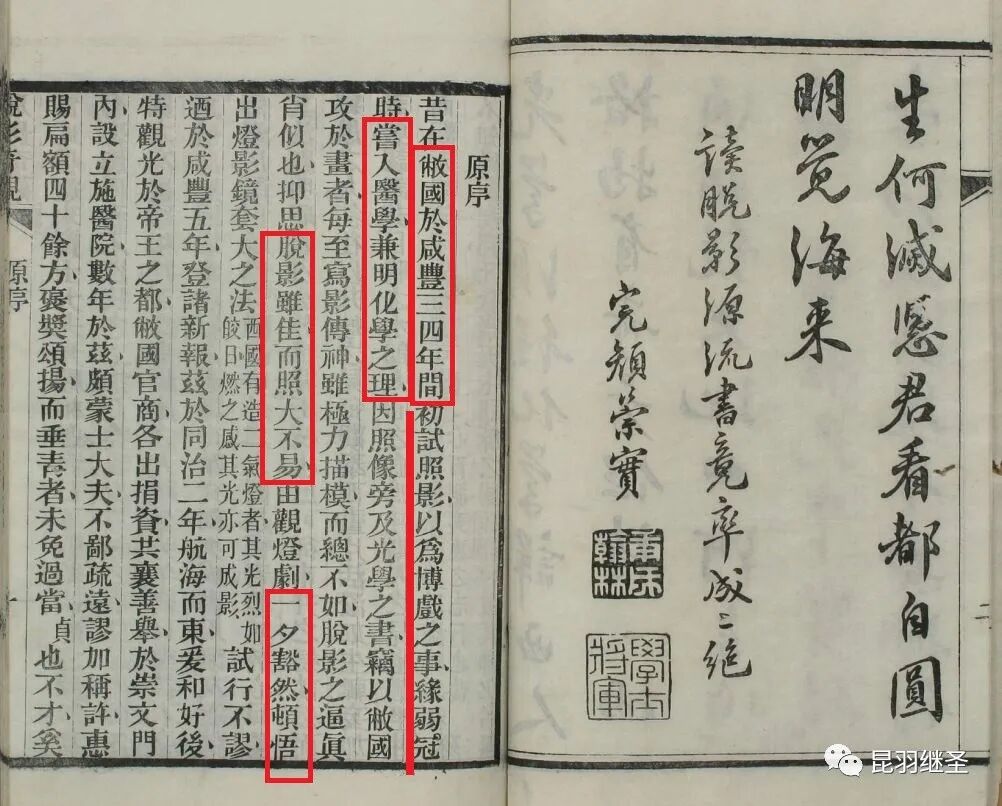 生何滅憑君看都自圓
明覺海来
讀脫影源流書竟率成二絕
完顏崇實
翰林
學士將軍
二
原序
昔在敝國於咸豐三四年間初試照影以爲博戲之事緣弱冠
時嘗入醫學兼明化學之理因照像旁及光學之書竊以敝國
攻於畫者每至寫影傳神雖極力描模而總不如脫影之逼眞
肖似也抑思脫影雖佳而照大不易由觀燈劇一夕豁然頓悟
出燈影鏡套大之法西國有造二氣燈者其光烈如皎日燃之感其光亦可成影試行不謬
迺於咸豐五年登諸新報茲於同治二年航海而東爰和好後
特觀光於帝王之都敝國官商各出捐資共襄善舉於崇文門
內設立施醫院數年於茲頗蒙士大夫不鄙疏遠謬加稱許惠
賜扁額四十餘方褒獎頌揚而垂青者未免過當貞也不才奚
脫影奇觀 原序 一
昆羽继圣